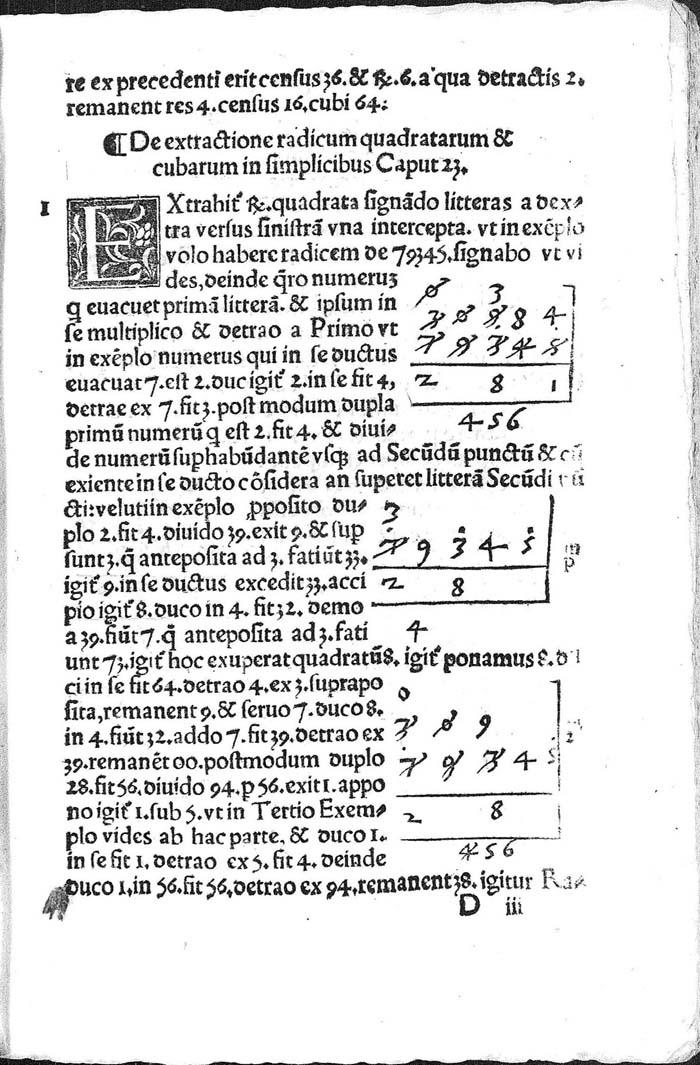 re ex precedenti erit census 36. & ℞. 6. a qua detractis 2.
remanent res 4. census 16. cubi 64:
¶ De extractione radicum quadratarum &
cubarum in simplicibus Caput 23.
1 EXtrahit᷑ ℞. quadrata signādo litteras a dex⸗
tra versus sinistrā vna intercepta. vt in exēplo
volo habere radicem de 79345. signabo vt vi
des, deinde q̄ro numeruꝫ
q euacuet primā litterā. & ipsum in
se multiplico & detrao a Primo vt
in exēplo numerus qui in se ductus
euacuat 7. est 2. duc igit᷑ 2. in se fit 4,
detrae ex 7. fit 3. post modum dupla
primū numerū q est 2. fit 4. & diui⸗
de numerū suꝑhabūdantē vsqꝫ ad Secūdū punctū &
exiente in se ducto cōsidera an superet litterā Secūdi
cti: veluti in exēplo ꝓposito du⸗
plo 2. fit 4. diuido 39. exit 9. & suꝑ
sunt 3. q̄ anteposita ad 3. fatiūt 33.
igit᷑ 9. in se ductus excedit 33. acci
pio igit᷑ 8. duco in 4. fit 32. demo
a 39. fiūt 7. q̄ anteposita ad 3. fati
unt 73. igit᷑ hoc exuperat quadratū 8. igit᷑ ponamus 8.
ci in se fit 64. detrao 4. ex 3. suprapo
sita, remanent 9. & seruo 7. duco 8.
in 4. fiūt 32. addo 7. fit 39. detrao ex
39. remanēt 00. postmodum duplo
28. fit 56. diuido 94. ꝑ 56. exit 1. appo
no igit᷑ 1. sub 5. vt in Tertio Exem⸗
plo vides ab hac parte, & duco 1.
in se fit 1. detrao ex 5. fit 4. deinde
duco 1. in 56. fit 56. detrao ex 94. remanent 38. igitur
D iii
0 3
3 0 8 8 4
7 9 3 4 5
2 8 1
456
3
7 9 3 4 5
2 8
4
0
3 0 9
7 9 3 4 5
2 8
456